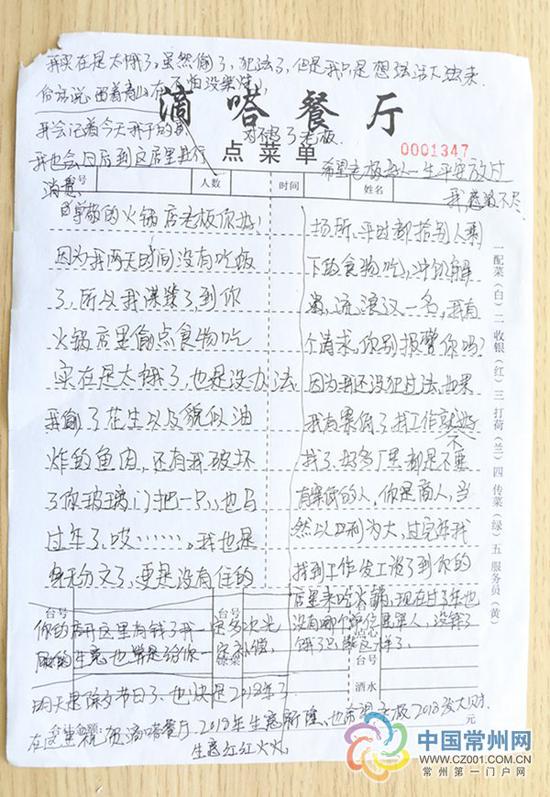 我实在是太饿了，虽然偷了，犯法了，但是我只是想活下去
俗话说留着青山在不怕没柴烧
滴嗒餐厅
我会记着今天
对不起了老板
点菜单
0001347
我也会日后到这店里进行
消费
希望老板好人一生平安放过
我，感激不尽
号
人数
时间
姓名
尊敬的火锅店老板你好！
因为我两天时间没有吃饭
了，所以我
了到你
火锅店里偷点食物吃
实在是太饿了，也是没办法，
我偷了花生以及貌似油
炸的鱼肉，还有我破坏
了你玻璃门把一只，也马
过年了，哎……，我也是
身无分文了，更是没有住的
场所，平时都捡别人剩
下的食物吃，
流浪汉一名，我有
个请求，你别报警你吗？
因为我还没犯过法，如果
我有案底了找工作就不好
找了，好多厂里都是不要
有案底的人，你是商人，当
然以利为大，过完年我
找到工作发工资了到你的
店里来吃火锅，现在过年也
没有哪个单位
一配菜（白）二收银（红）三打荷（兰）四传菜（绿）五服务员（黄）
台号
台号
点心
台号
酒水
元
你的店开这里有钱了我一定多次光
顾你的生意也算是给你一定补偿，
明天是除夕节日了，也快是2018年了
在这里祝贺滴嗒餐厅2018年生意兴隆，也希望老板2018发大财，
生意红红火火
中国常州网
WWW.CZ001.COM.CN
常州第一门户网